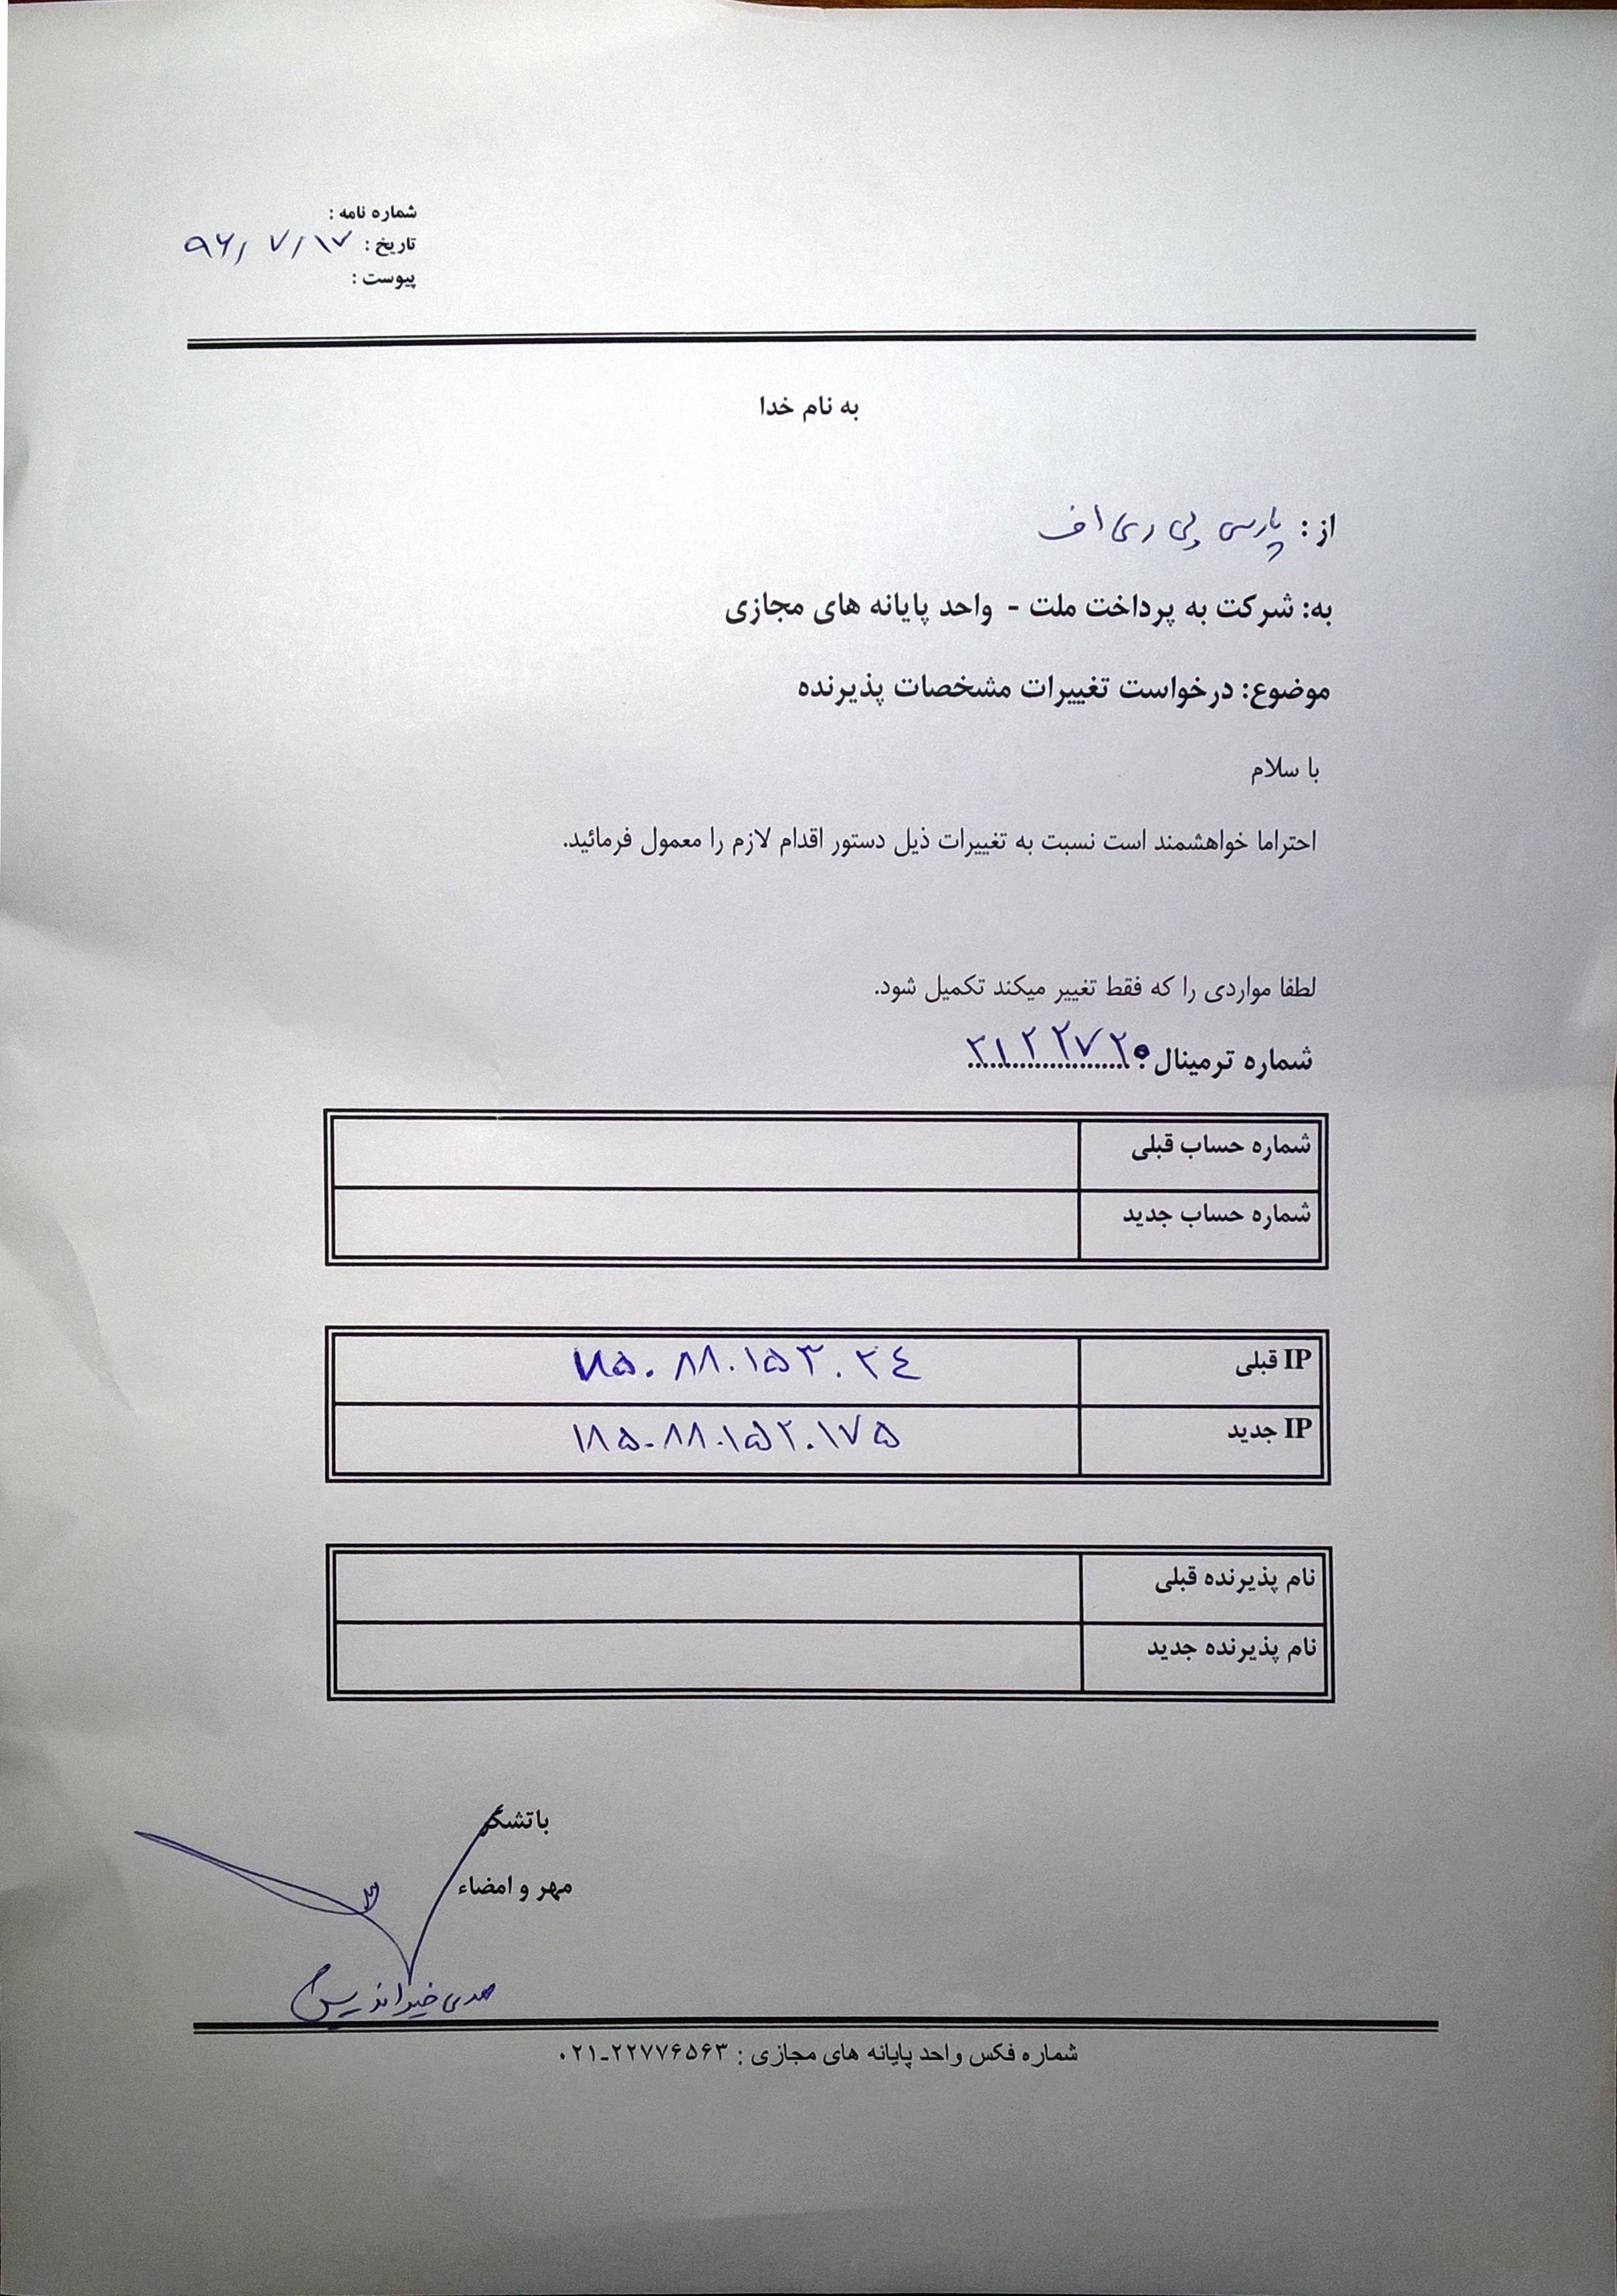 شماره نامه :
تاریخ : ۹۶/ ۷/ ۱۷
پیوست :
به نام خدا
از : پارسی پی دی اف
به: شرکت به پرداخت ملت - واحد پایانه های مجازی
موضوع: درخواست تغییرات مشخصات پذیرنده
با سلام
احتراما خواهشمند است نسبت به تغییرات ذیل دستور اقدام لازم را معمول فرمائید.
لطفا مواردی را که فقط تغییر میکند تکمیل شود.
شماره ترمینال :
شماره حساب قبلی
شماره حساب جدید
IP قبلی ۱۸۵.۸۸.۱۵۳.۲٤
IP جدید ۱۸۵.۸۸.۱۵۲.۱۷۵
نام پذیرنده قبلی
نام پذیرنده جدید
باتشکر
مهر و امضاء
مهدی خیراندیش
شماره فکس واحد پایانه های مجازی : ۲۲۷۷۶۵۶۳-۰۲۱